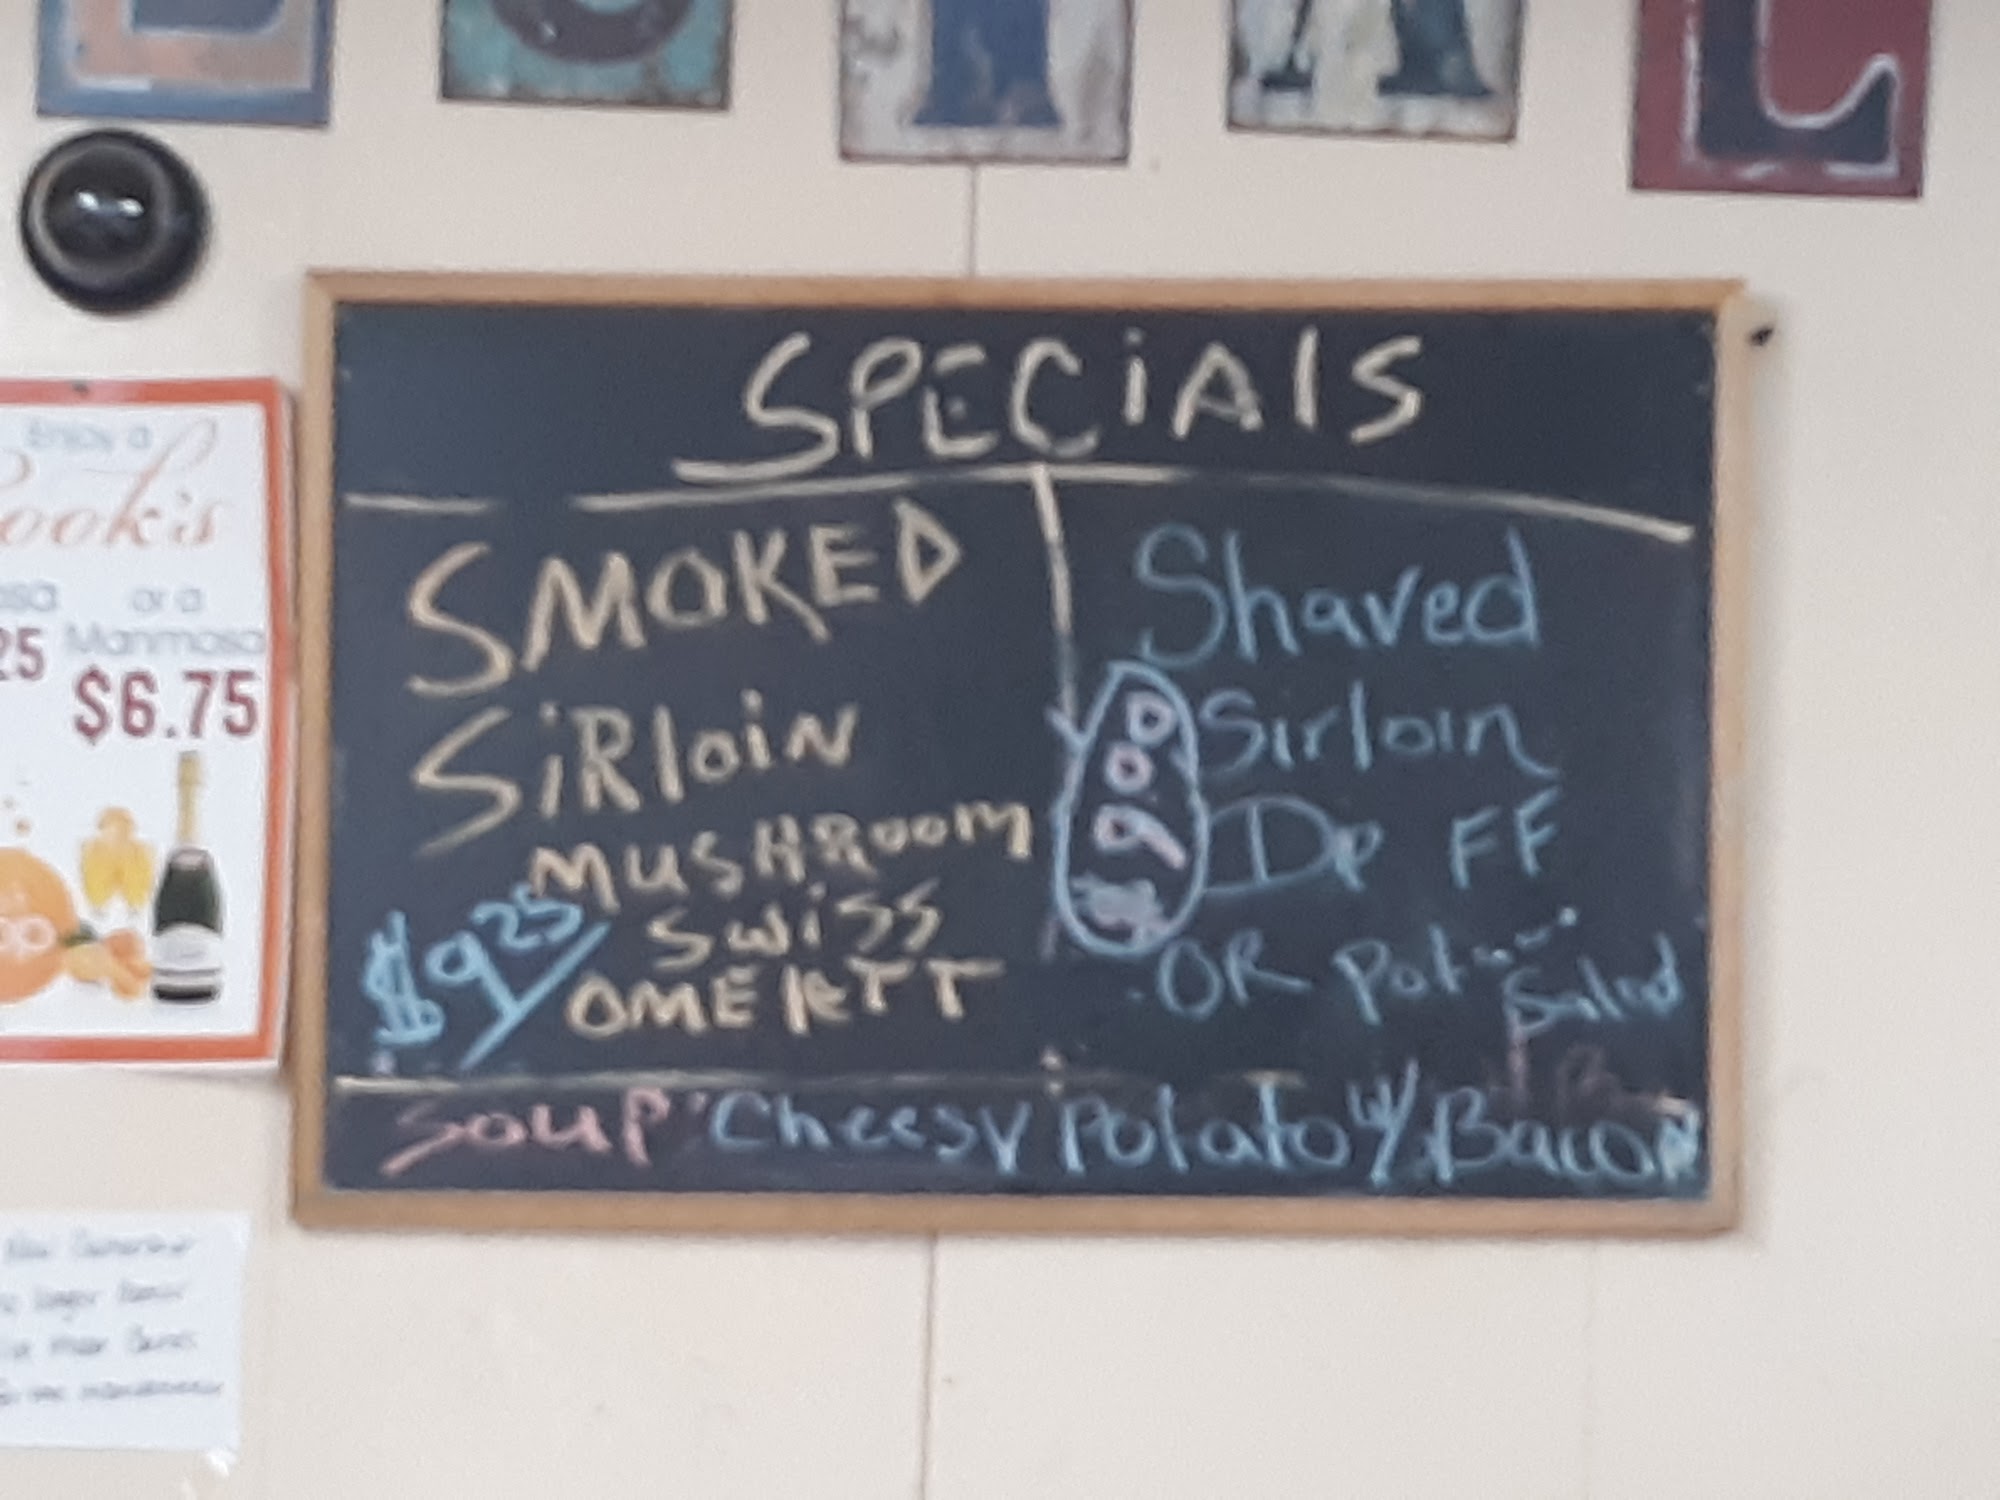 Enjoy a
ook's
or a
25 Manmosa
$6.75
SPECiAlS
SMOKED
SiRloiN
MUSHROOM
SWiSS
OMElETT
$9.25
Shaved
Sirloin
Dp FF
OR Pot....
Salad
$9.00
Soup: Cheesy Potato w/ Bacon